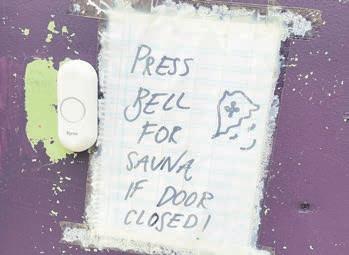 PRESS
BELL
FOR
SAUNA
IF DOOR
CLOSED!